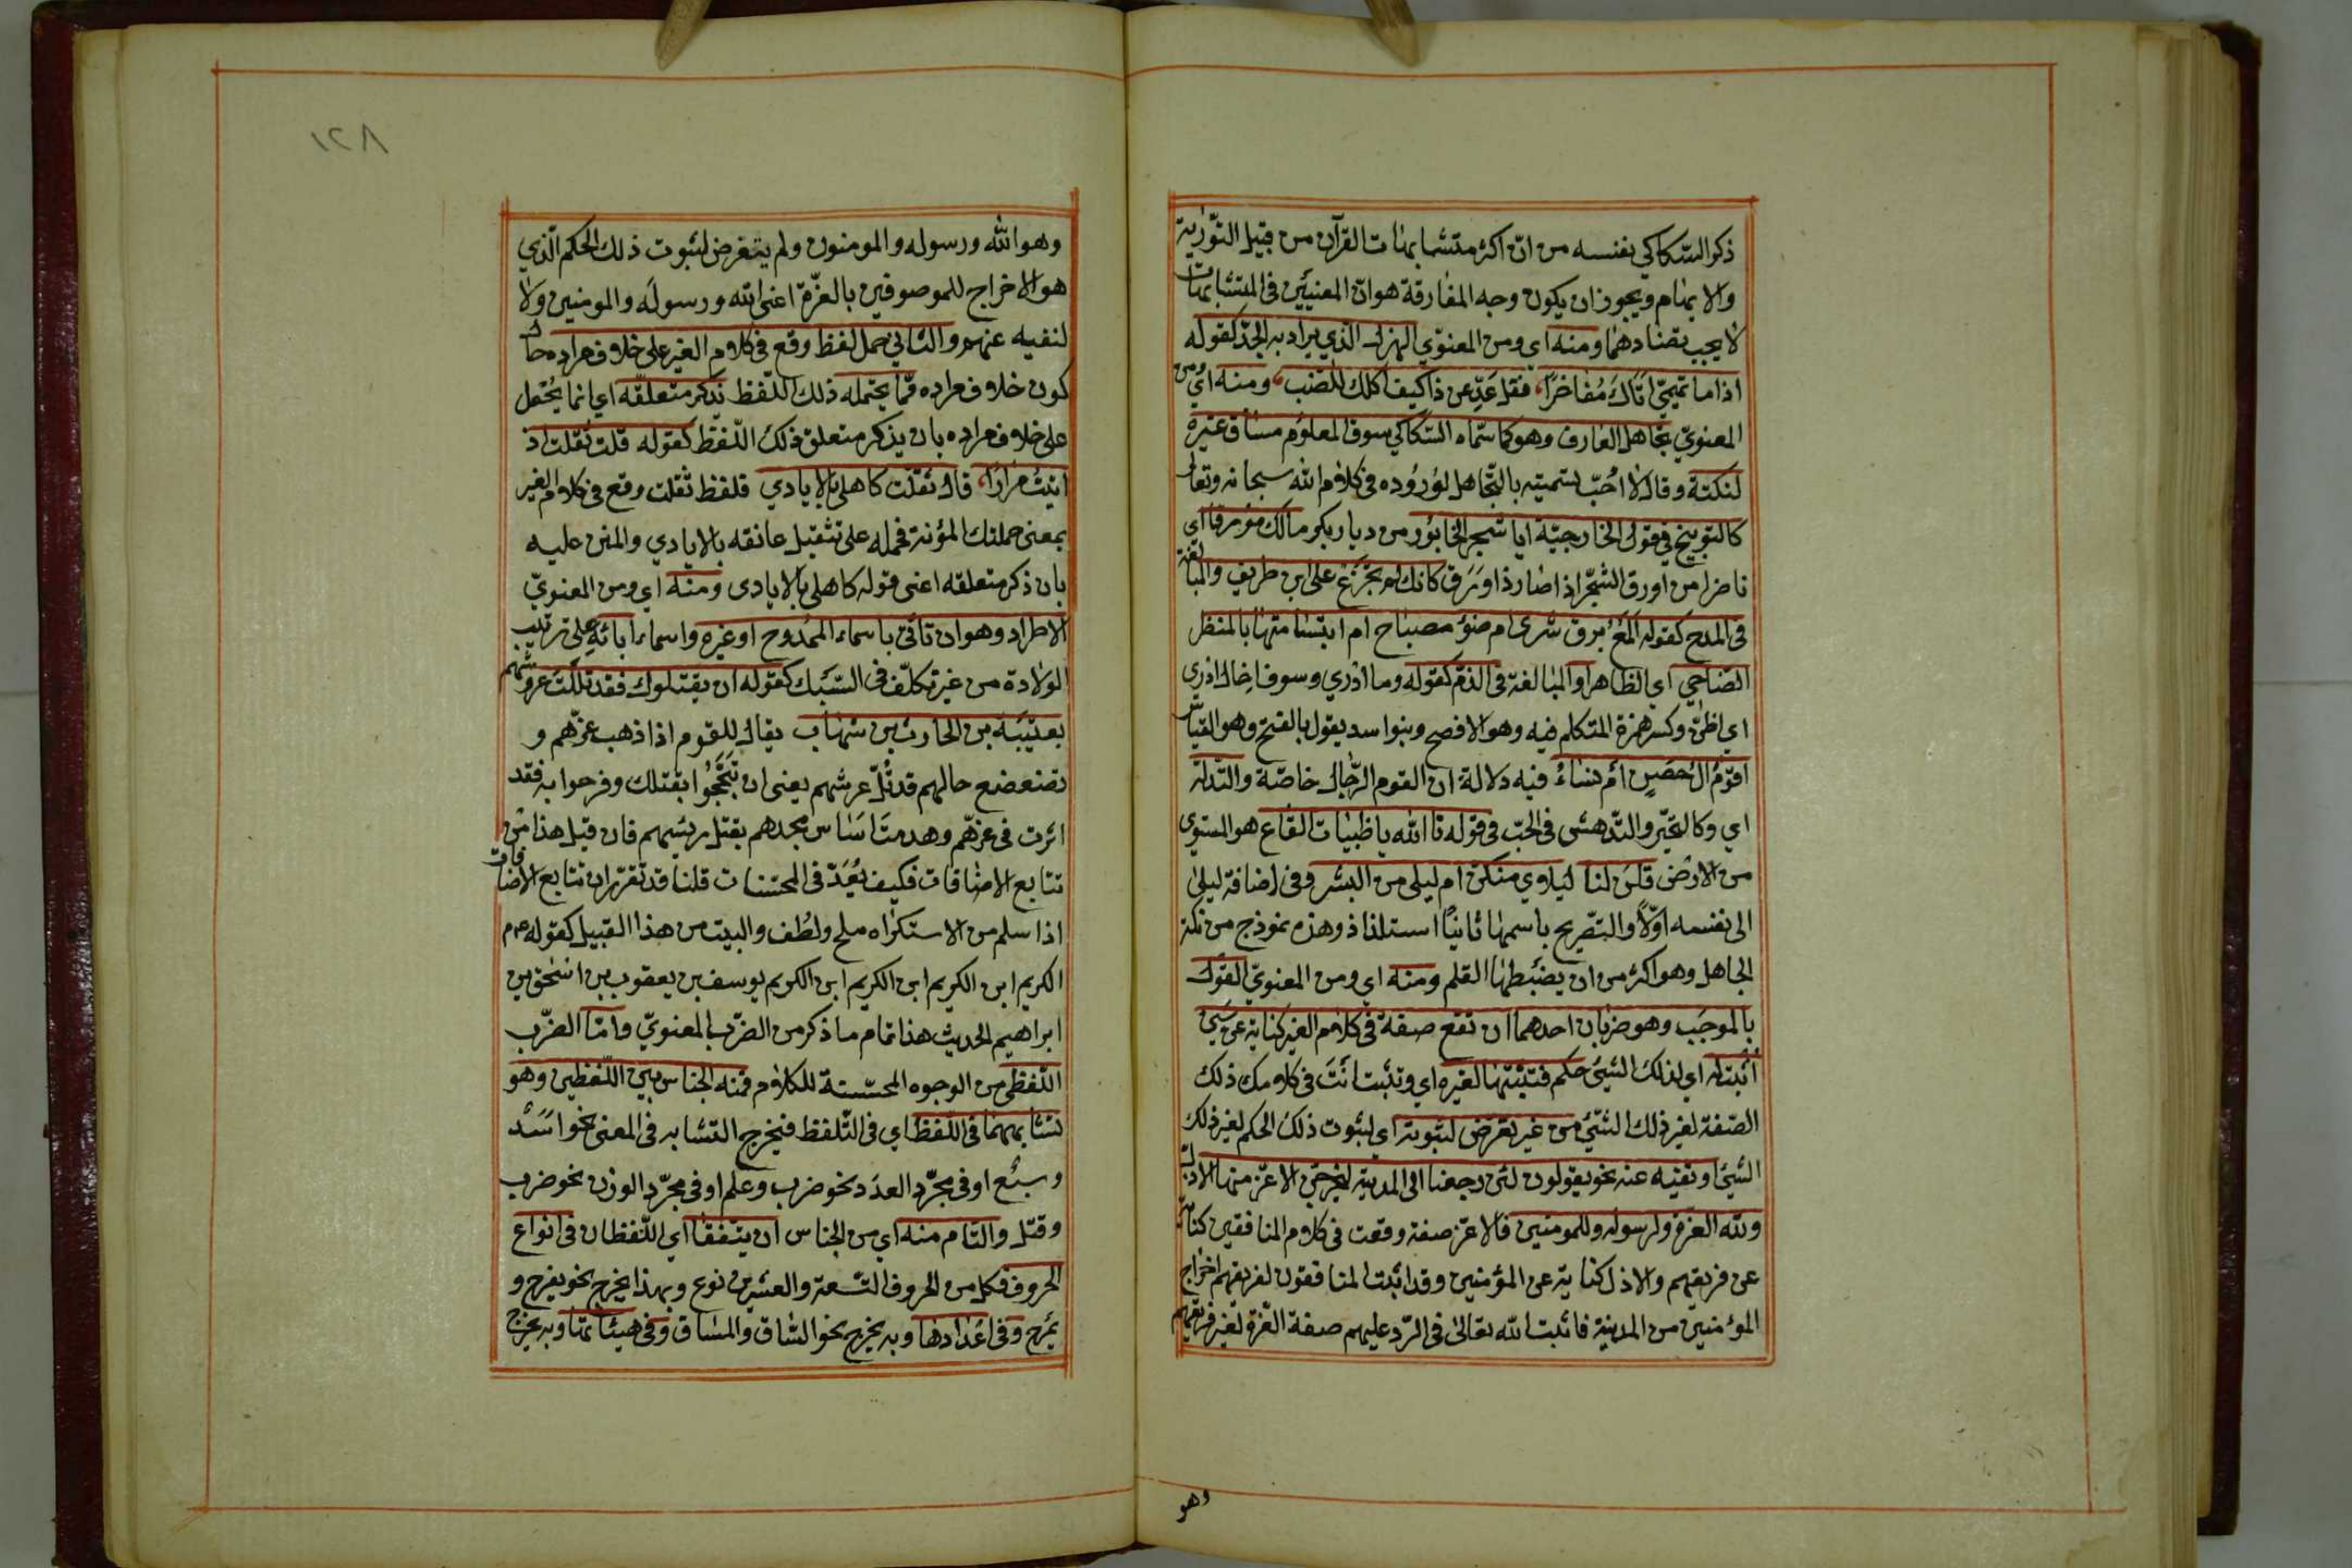 ذكر السّكاكي بنفسه من انّ اكثر متشابهات القرآن من قبيل التّورية
والايهام ويجوز ان يكون وجه المفارقة هو ان المعنيين في المتشابهات
لا يجب تضادهما ومنه اي ومن المعنوي الهزل الّذي يراد به الجدّ كقوله
اذا ما تميميّ اتاك مُفاخرًا، فقل عَدِّ عن ذا كيف اكلك للضّب، ومنه اي من
المعنويّ تجاهل العارف وهو كما سمّاه السّكاكي سوق المعلوم مساق غيره
لنكتة وقال لا اُحبّ تسميته بالتّجاهل لوُروُده في كلام الله سبحانه وتعالى
كالتوبيخ في قول الخارجيّة ايا شجر الخابور من ديار بكر مالك مورقا اي
ناضرا من اورق الشّجر اذا صار ذا وَرَق كانك لم تجزع على ابن طريف والمبالغة
في المدح كقوله المَعُ برق سَرى ام ضوء مصباح ام ابتسامتها بالمنظر
الضّاحي اي الظاهر او المبالغة في الذّم كقوله وما ادْري وسوف اخال ادْري
اي اظنّ وكسر همزة المتكلم فيه وهو الافصح وبنو اسد يقول بالفتح وهو القياس
اقومٌ اٰل حصنٍ ام نساءُ فيه دلالة ان القوم الرّجال خاصّة والتدلّه
اي وكالتحيّر والتّدهش في الحبّ في قوله تا الله يا ظبيات القاع هو المستوي
من الارض قلن لنا ليلاي منكنّ ام ليلى من البشر وفي اضافة ليلى
الى نفسه اوّلاً والتّصريح باسمها ثانياً استلذاذ وهذه نموذج من نكتة
الجاهل وهو اكثر من ان يضبطها القلم ومنه اي ومن المعنويّ القول
بالموجَب وهو ضربان احدهما ان تقع صفة في كلام الغير كناية عن شيء
اُثبت له اي لذلك الشّيء حكم فتثبتها لغيره اي وتثبت انت في كلامك ذلك
الصّفة لغير ذلك الشّيء من غير تعرّض لثبوته اي لثبوت ذلك الحكم لغير ذلك
الشّيء او نفيه عنه نحو يقولون لئن رجعنا الى المدينة ليخرجنّ الاعزّ منها الاذلّ
ولله العزّة ولرسوله وللمومنين فالاعزّ صفة وقعت في كلام المنافقين كناية
عن فريقهم والاذل كناية عن المؤمنين وقد اثبت المنافقون لفريقهم اخراج
المؤمنين من المدينة فاثبت الله تعالى في الرّد عليهم صفة العّزة لغير فريقهم
وهو
١٢٨
وهو الله ورسوله والمومنون ولم يتعرض لثبوت ذلك الحكم الّذي
هو الاخراج للموصوفين بالعزّة اعنى الله ورسوله والمومنين ولا
لنفيه عنهم والثاني حمل لفظ وقع في كلام الغير على خلاف مراده حال
كون خلاف مراده ممّا يحتمله ذلك اللّفظ بذكر متعلّقه اي انما يُحمل
على خلاف مراده بان يذكر متعلق ذلك اللّفظ كقوله قلت ثقلت اذ
اتيتُ مِرارًا، قال ثقلت كاهلي بالايادي فلفظ ثقلت وقع في كلام الغير
بمعنى حملتك المؤنة فحمله على تثقيل عاتقه بالايادي والمنن عليه
بان ذكر متعلقه اعنى قوله كاهلي بالايادى ومنه اي ومن المعنويّ
الاطراد وهو ان تاتى باسماء الممدوح او غيره واسماء ابائه على ترتيب
الولادة من غير تكلّف في السّبك كقوله ان يقتلوك فقد ثللت عروشهم
بعتيبة بن الحارث بن شهاب يقال للقوم اذا ذهب عزّهم و
تضعضع حالهم قد ثُلّ عرشهم يعنى ان تَبَجَّحُوا بقتلك وفرحوا به فقد
اثرت في عزّهم وهدمت اساس مجدهم بقتل رئيسهم فان قيل هذا من
تتابع الاضافات فكيف يُعَدّ في المحسّنات قلنا قد تقرّر ان تتابع الاضافات
اذا سلم من الاستكراه ملح ولطُف والبيت من هذا القبيل كقوله عم
الكريم ابن الكريم ابن الكريم ابن الكريم يوسف بن يعقوب بن اسحٰق بن
ابراهيم الحديث هذا تمام ما ذكر من الضّرب المعنويّ وامّا الضّرب
اللّفظي من الوجوه المحسّنة للكلام فمنه الجناس بين اللّفظين وهو
تشابههما في اللّفظ اي في التّلفظ فيخرج التشابه في المعنى نحو اسَد
وسبُع او في مجرّد العدَد نحو ضرب وعلم او في مجرّد الوزن نحو ضرب
وقتل والتام منه اي من الجناس ان يتفقا اي اللّفظان في انواع
الحروف فكل من الحروف التّسعة والعشرين نوع وبهذا يخرج نحو يفرح و
يمرح وفي اعدادها وبه يخرج نحو السّاق والمساق وفي هيئاتها وبه يخرج